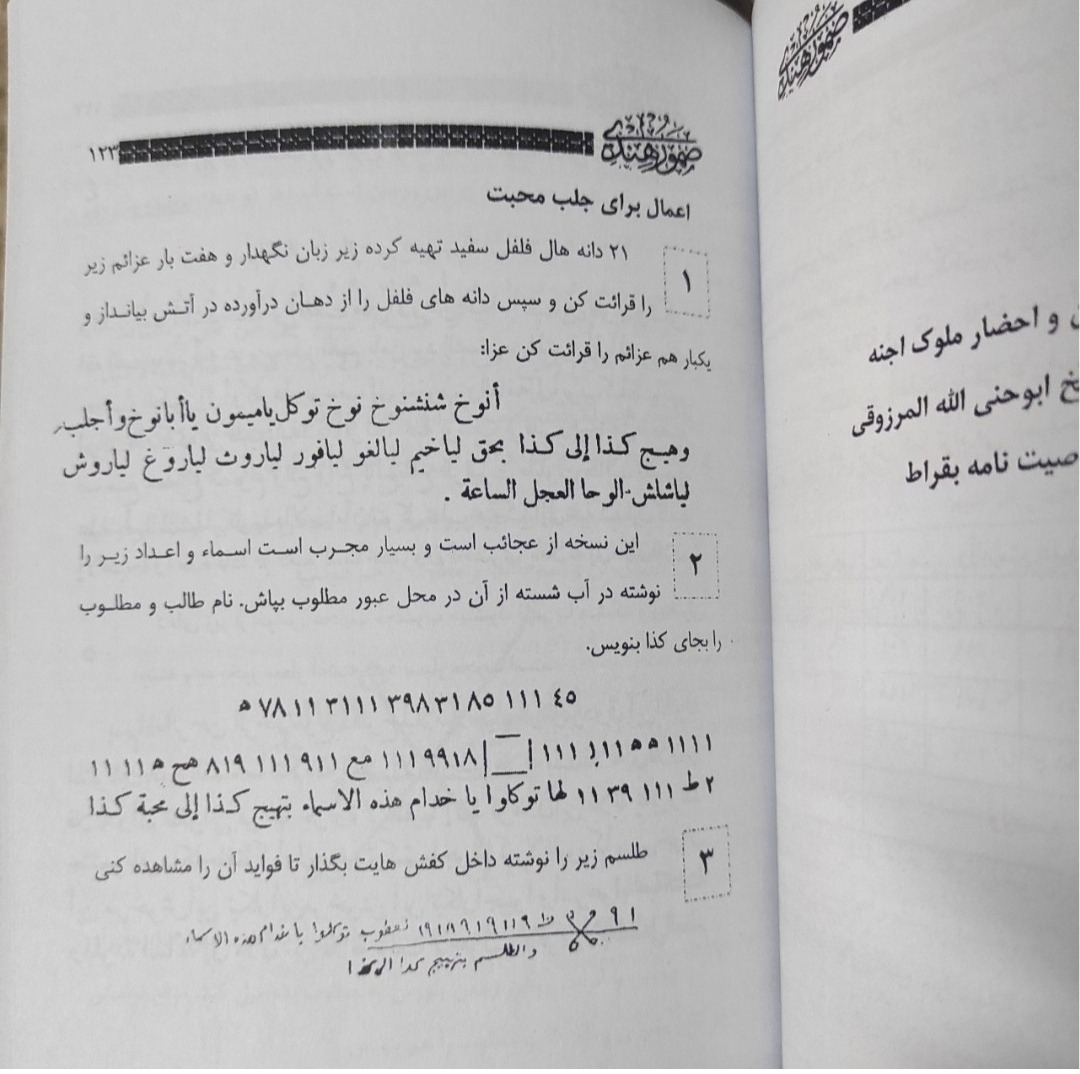 ضمور هندی
۱۲۳
اعمال برای جلب محبت
۱
۲۱ دانه هال فلفل سفید تهیه کرده زیر زبان نگهدار و هفت بار عزائم زیر
را قرائت کن و سپس دانه های فلفل را از دهان درآورده در آتش بیانداز و
یکبار هم عزائم را قرائت کن عزا:
أنوخ شنشنوخ نوخ توکل یامیمون یاأبانوخ وأجلب
وهیج کذا إلى کذا بحق لیاخیم لیالغو لیافور لیاروث لیاروغ لیاروش
لیاشلش الوحا العجل الساعة .
۲
این نسخه از عجائب است و بسیار مجرب است اسماء و اعداد زیر را
نوشته در آب شسته از آن در محل عبور مطلوب بپاش. نام طالب و مطلوب
را بجای کذا بنویس.
٤٥ ١١١ ٣٩٨٣١٨٥ ٣١١١ ٧٨١١ ه
١١١١ ه ه ١١ ١١١ ١١١٩٩١٨ مع ٩١١ ١١١ ٨١٩ هح ه ١١ ١١
٢ ط ١١١ ٣٩ ١١ لها توکلوا یا خدام هذه الاسماء بتهیج کذا إلى محبة کذا
۳
طلسم زیر را نوشته داخل کفش هایت بگذار تا فواید آن را مشاهده کنی
٩١ توکلوا یا خدام هذه الاسماء
والطلسم بتهییج کذا
ضمور هندی
و احضار ملوک اجنه
ابوحنی الله المرزوقی
صیت نامه بقراط